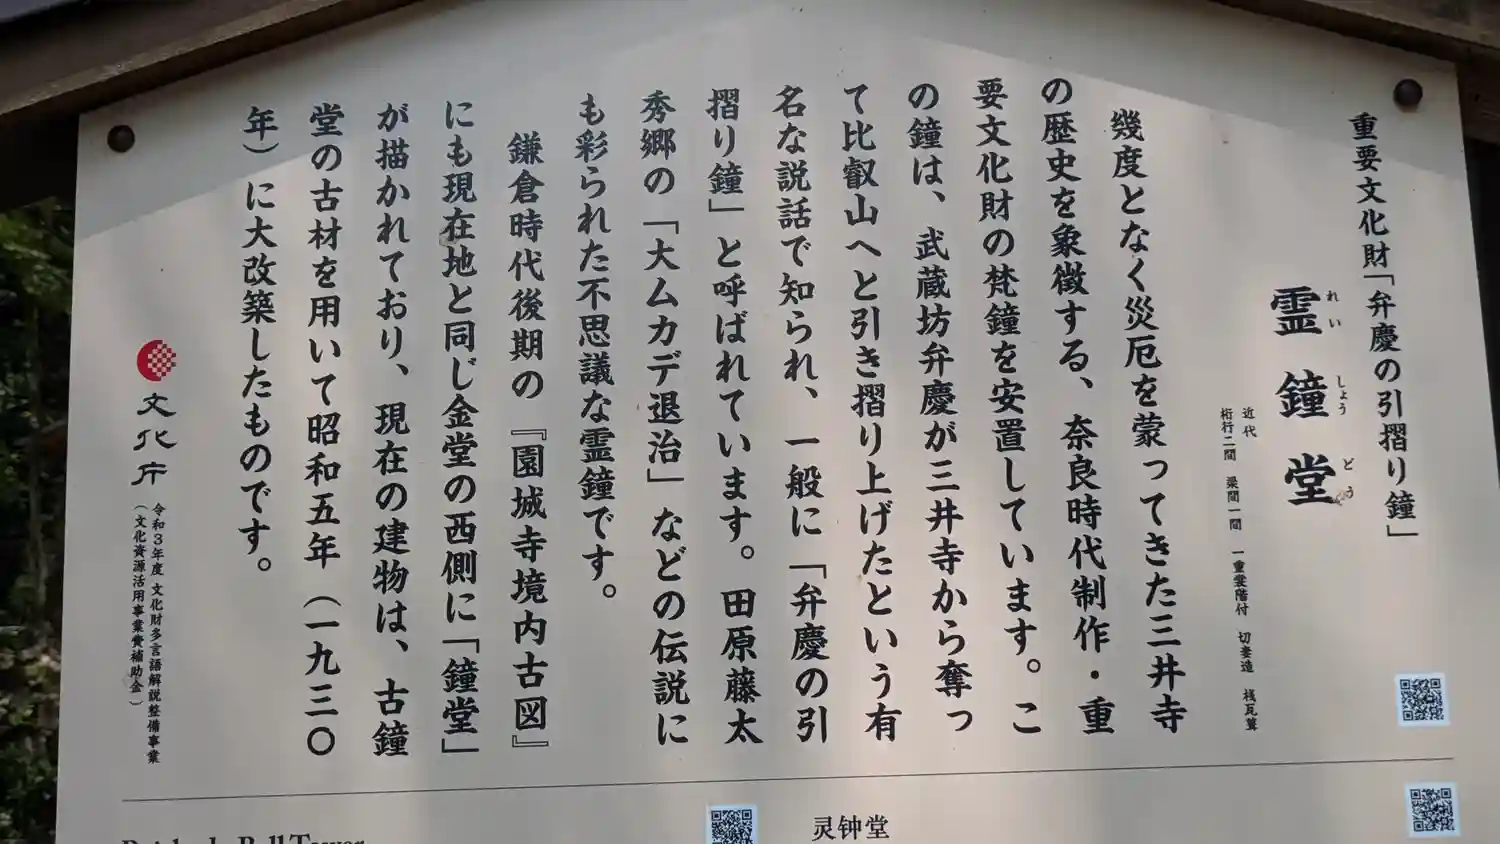 重要文化財「弁慶の引摺り鐘」
霊鐘堂
れいしょうどう
近代
桁行二間　梁間一間　一重裳階付　切妻造　桟瓦葺
幾度となく災厄を蒙ってきた三井寺
の歴史を象徴する、奈良時代制作・重
要文化財の梵鐘を安置しています。こ
の鐘は、武蔵坊弁慶が三井寺から奪っ
て比叡山へと引き摺り上げたという有
名な説話で知られ、一般に「弁慶の引
摺り鐘」と呼ばれています。田原藤太
秀郷の「大ムカデ退治」などの伝説に
も彩られた不思議な霊鐘です。
鎌倉時代後期の『園城寺境内古図』
にも現在地と同じ金堂の西側に「鐘堂」
が描かれており、現在の建物は、古鐘
堂の古材を用いて昭和五年（一九三〇
年）に大改築したものです。
文化庁
令和3年度 文化財多言語解説整備事業
（文化資源活用事業費補助金）
Bell Tower
灵钟堂